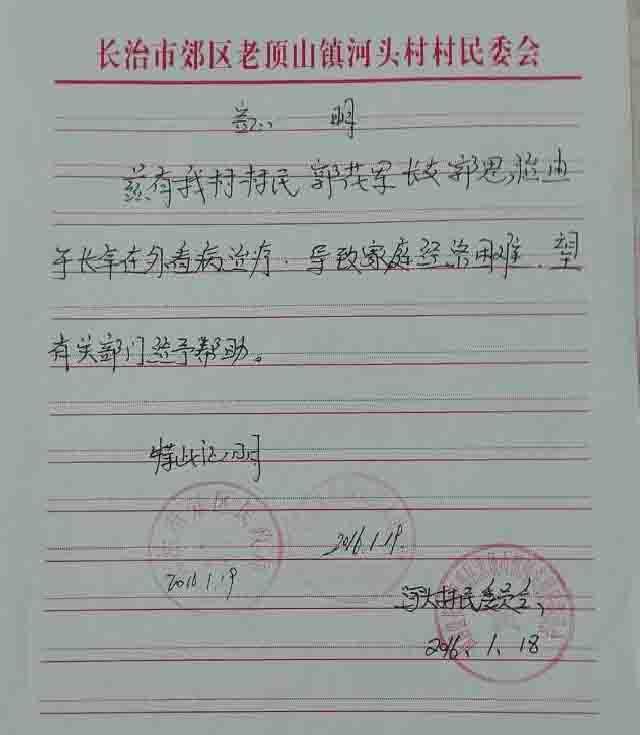 长治市郊区老顶山镇河头村村民委会
证 明
兹有我村村民 郭茂军 长女 郭思 由
于长年在外看病治疗. 导致家庭经济困难. 望
有关部门给予帮助。
特此证明
2016.1.19.
2016.1.19
河头村民委员会
2016.1.18